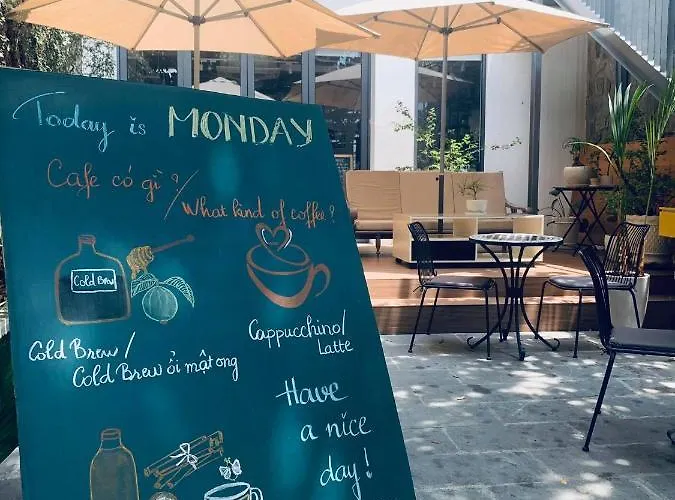 Today is MONDAY
Cafe có gì ? / What kind of coffee ?
Cold Brew
Cold Brew /
Cold Brew ổi mật ong
Cappucchino/
Latte
Have
a nice
day !